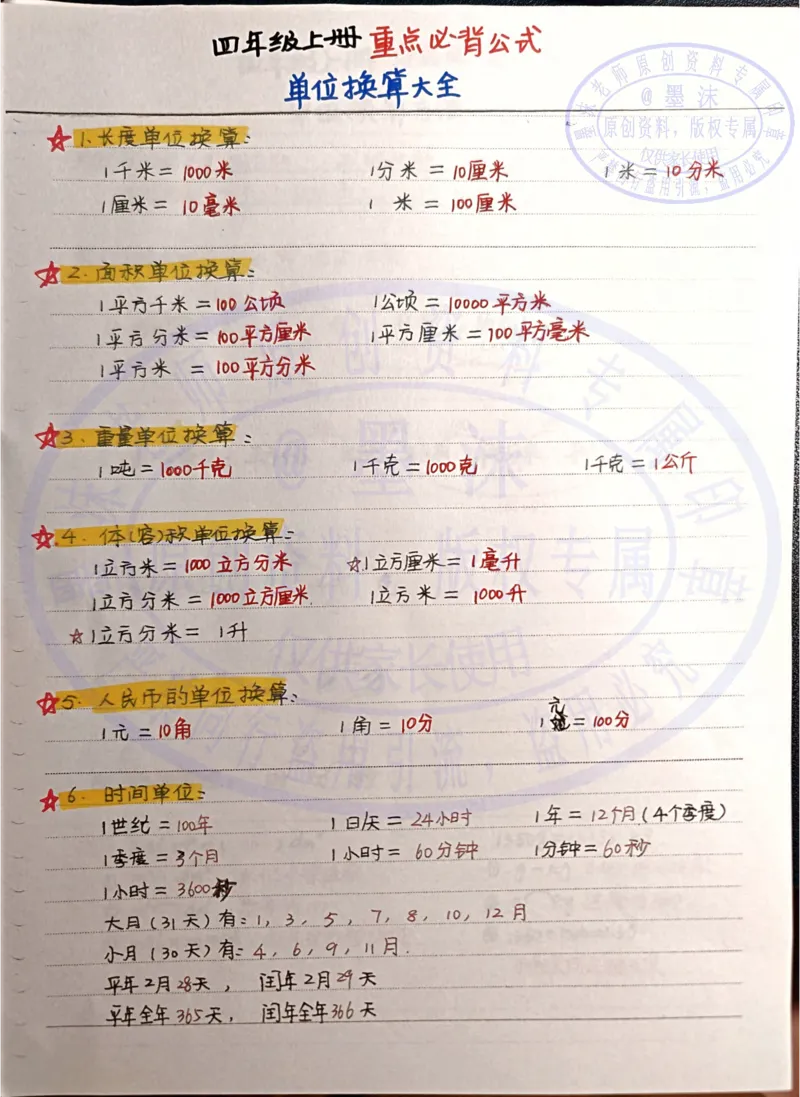 四年级上册 重点必背公式
单位换算大全
墨沫老师原创资料专属印章
@墨沫
原创资料，版权专属
仅供家长使用
☆1.长度单位换算：
1千米=1000米 1分米=10厘米 1米=10分米
1厘米=10毫米 1米=100厘米
☆2.面积单位换算：
1平方千米=100公顷 1公顷=10000平方米
1平方分米=100平方厘米 1平方厘米=100平方毫米
1平方米=100平方分米
☆3.重量单位换算：
1吨=1000千克 1千克=1000克 1千克=1公斤
☆4.体(容)积单位换算：
1立方米=1000立方分米 ☆1立方厘米=1毫升
1立方分米=1000立方厘米 1立方米=1000升
☆1立方分米=1升
☆5.人民币的单位换算：
1元=10角 1角=10分 1元=100分
☆6.时间单位：
1世纪=100年 1日/天=24小时 1年=12个月(4个季度)
1季度=3个月 1小时=60分钟 1分钟=60秒
1小时=3600秒
大月(31天)有：1，3，5，7，8，10，12月
小月(30天)有：4，6，9，11月.
平年2月28天，闰年2月29天
平年全年365天，闰年全年366天